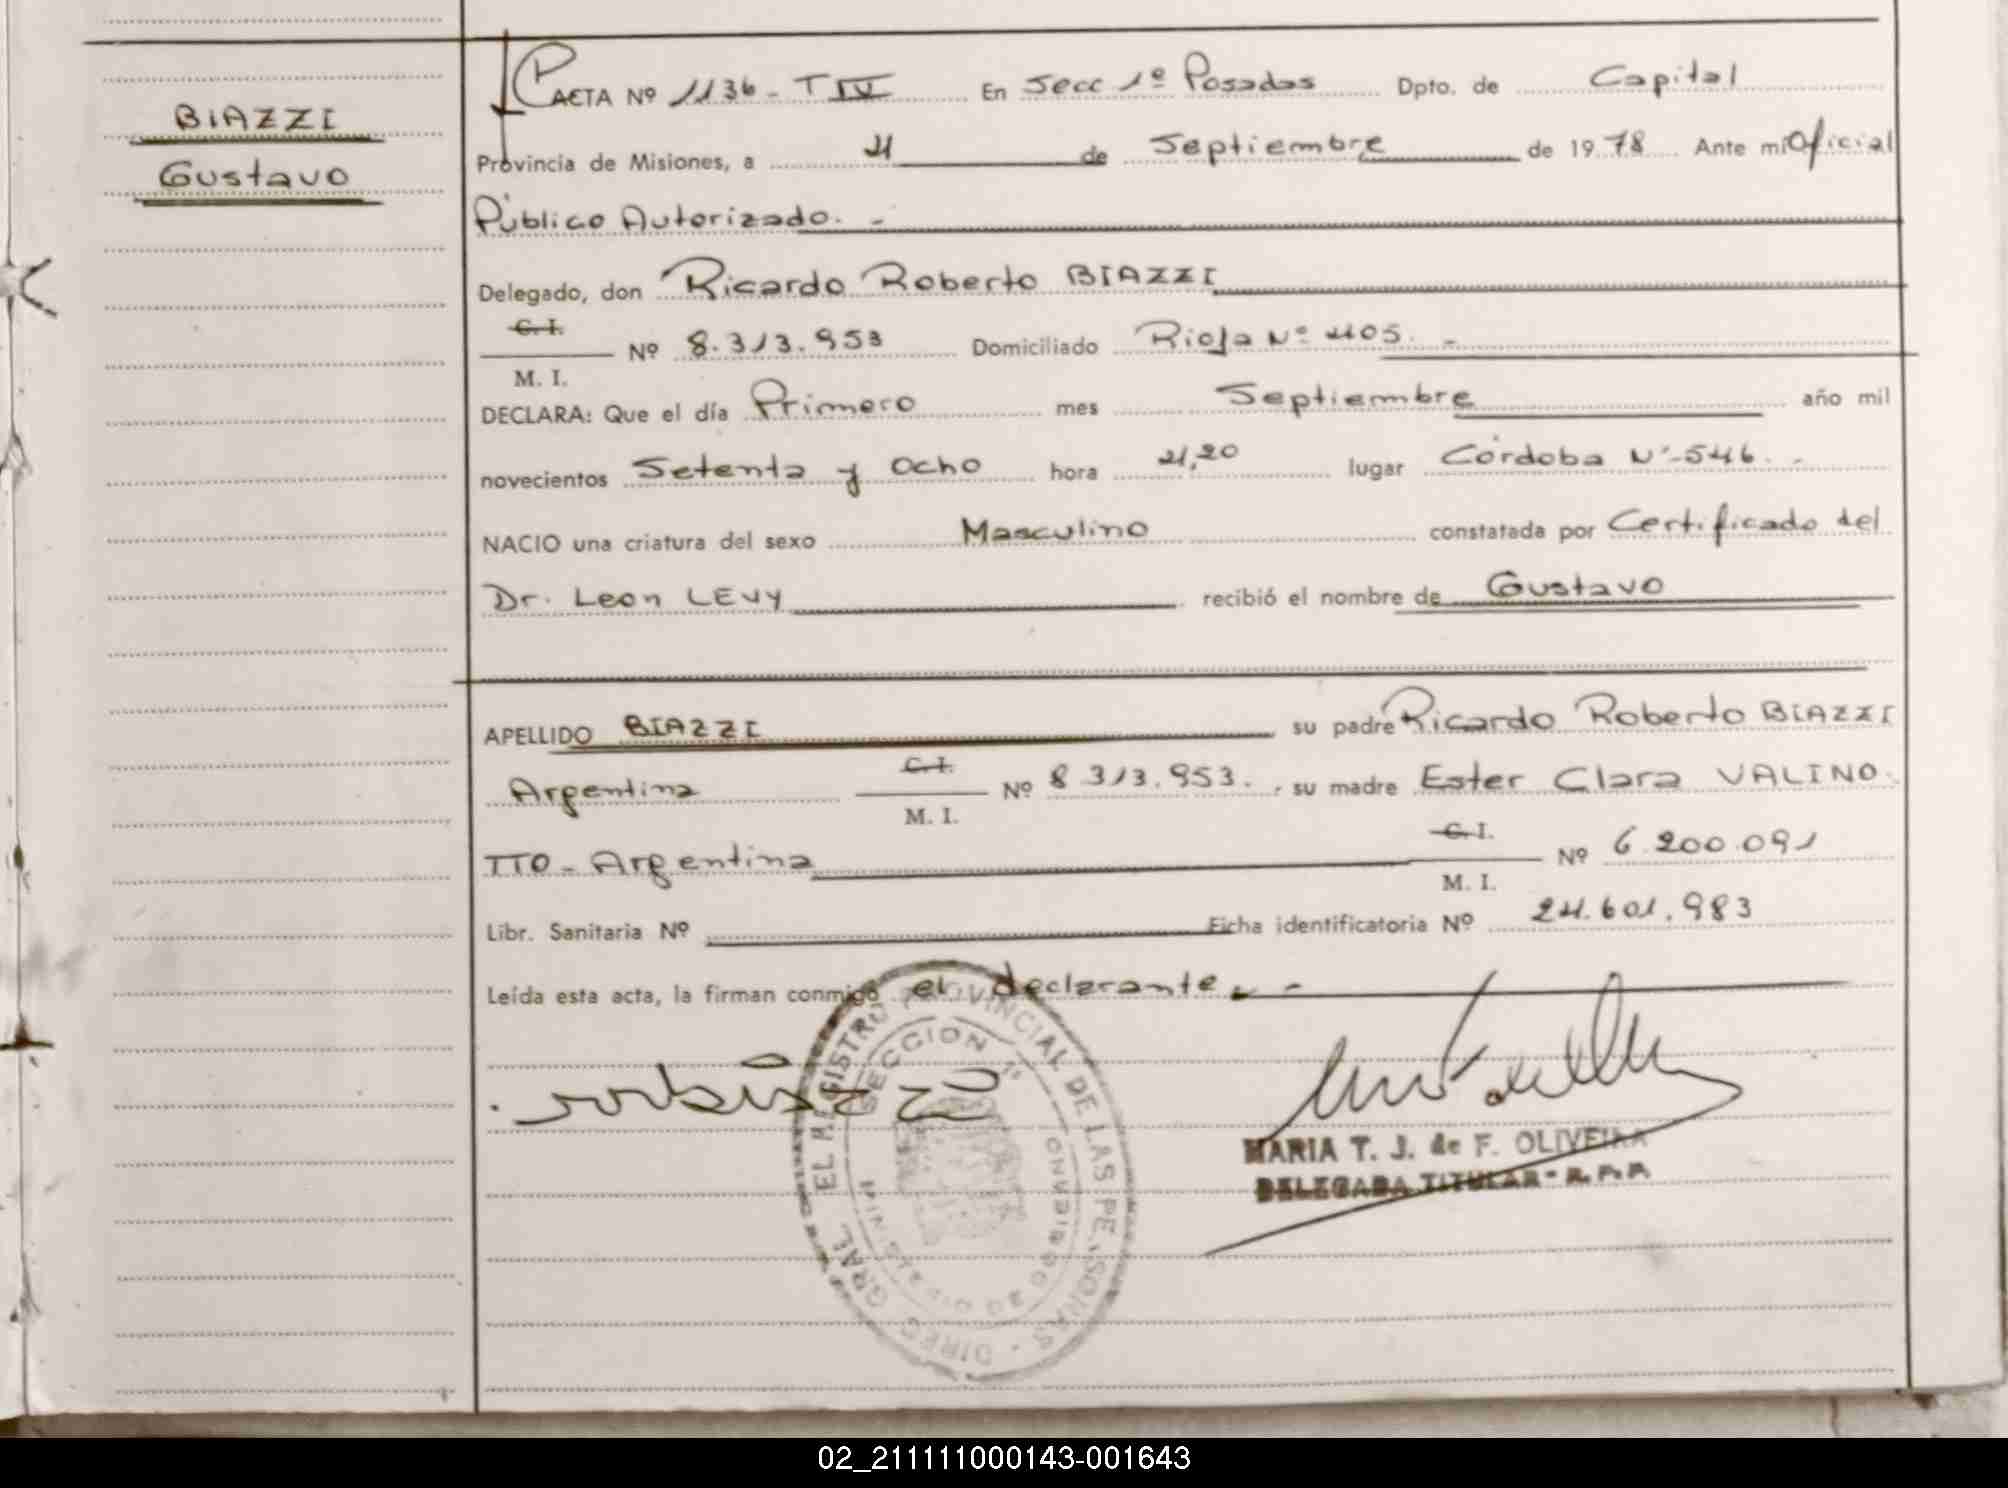 BIAZZI
Gustavo
ACTA Nº 1136 - T IV En Secc 1º Posadas Dpto. de Capital
Provincia de Misiones, a 21 de Septiembre de 1978 Ante mi Oficial
Público Autorizado. -
Delegado, don Ricardo Roberto BIAZZI
C. I.
Nº 8.313.953 Domiciliado Rioja Nº 2105. -
M. I.
DECLARA: Que el día Primero mes Septiembre año mil
novecientos Setenta y Ocho hora 21,20 lugar Córdoba Nº 546. -
NACIO una criatura del sexo Masculino constatada por Certificado del
Dr. Leon LEVY recibió el nombre de Gustavo
APELLIDO BIAZZI su padre Ricardo Roberto BIAZZI
Argentina C. I. Nº 8 313.953. , su madre Ester Clara VALINO
M. I.
TTO - Argentina C. I. Nº 6.200.091
M. I.
Libr. Sanitaria Nº Ficha identificatoria Nº 24.601.983
Leída esta acta, la firman conmigo el declarante. -
DIREC. GRAL. DEL REGISTRO PROVINCIAL DE LAS PERSONAS
SECCION 1º
MARIA T. J. de F. OLIVEIRA
DELEGADA TITULAR - R. P. P.
02_211111000143-001643